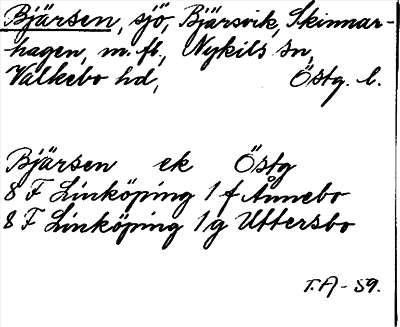 Bjärsen, sjö, Bjärsvik, Skinnar-
hagen, m. fl., Nykils sn,
Valkebo hd, Östg. l.
Bjärsen ek Östg
8 F Linköping 1 f Ånnebo
8 F Linköping 1 g Uttersbo
T.A-59.